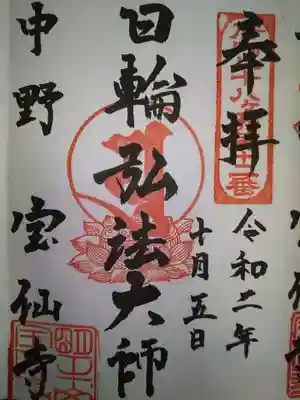 奉拝
令和二年
十月五日
日輪弘法大師
中野 宝仙寺